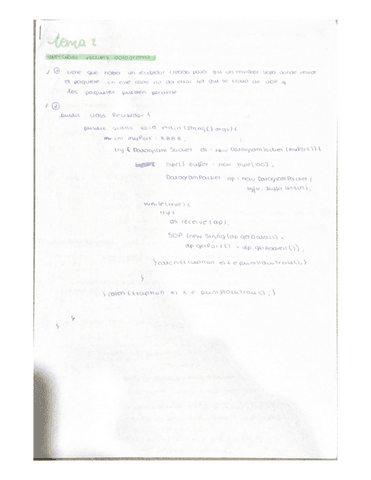 tema 2
① tiene que haber un receptor creado para que un emisor sepa donde enviar
el paquete. En este caso no da error ya que se trata de UDP y
los paquetes pueden perderse
②
public class Receptor {
public static void main (String[] args) {
int myPort = 8888;
try { DatagramSocket ds = new DatagramSocket (myPort)) {
byte[] buffer = new byte[100];
DatagramPacket dp = new DatagramPacket (
buffer.length);
while (true) {
try {
ds.receive (dp);
SOP (new String (dp.getData()),
dp.getPort()
} catch (Exception e) { e.printStackTrace(); }
}
} catch (Exception e) { e.printStackTrace(); }
}
}